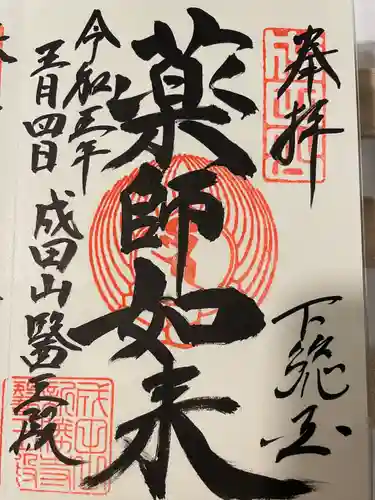 奉拝
下総国
薬師如来
令和三年
五月四日
成田山醫王殿
成田山